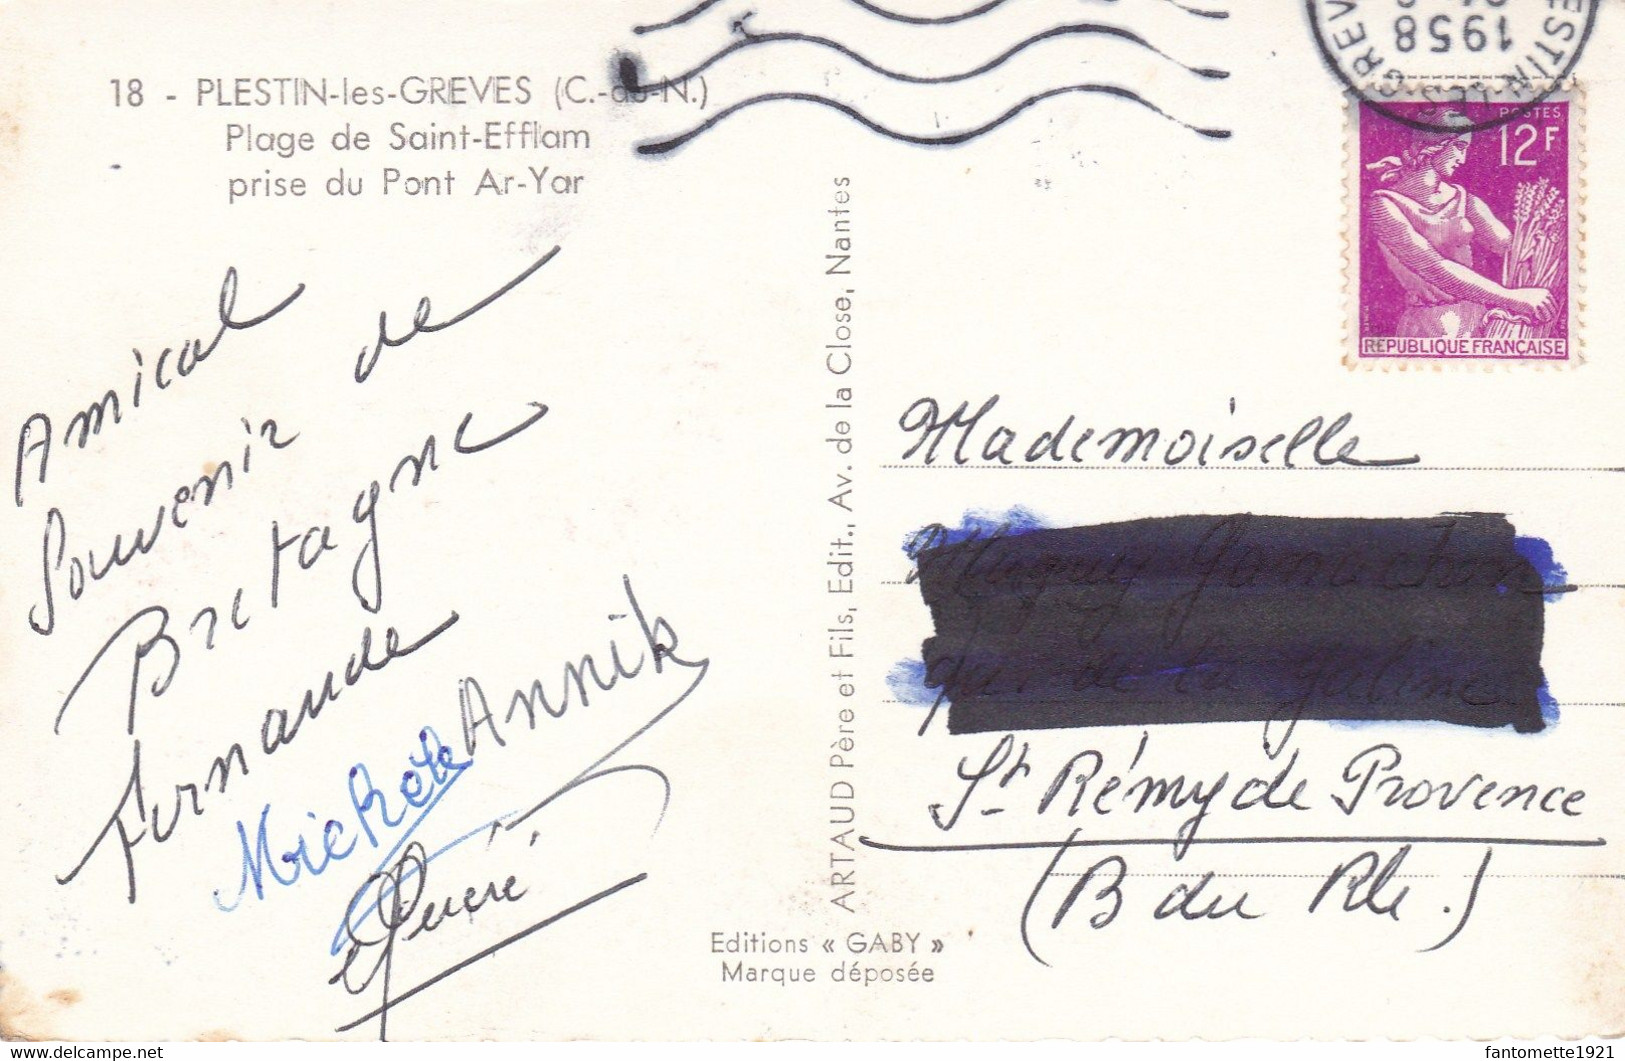 18 - PLESTIN-les-GREVES (C.-du-N.)
Plage de Saint-Efflam
prise du Pont Ar-Yar
Amical
Souvenir de
Bretagne
Fernande
Annik
Michèle
ARTAUD Père et Fils, Edit., Av. de la Close, Nantes
Editions « GABY »
Marque déposée
1958
POSTES
12F
REPUBLIQUE FRANÇAISE
Mademoiselle
St Rémy de Provence
(B du Rh.)
fantomette1921